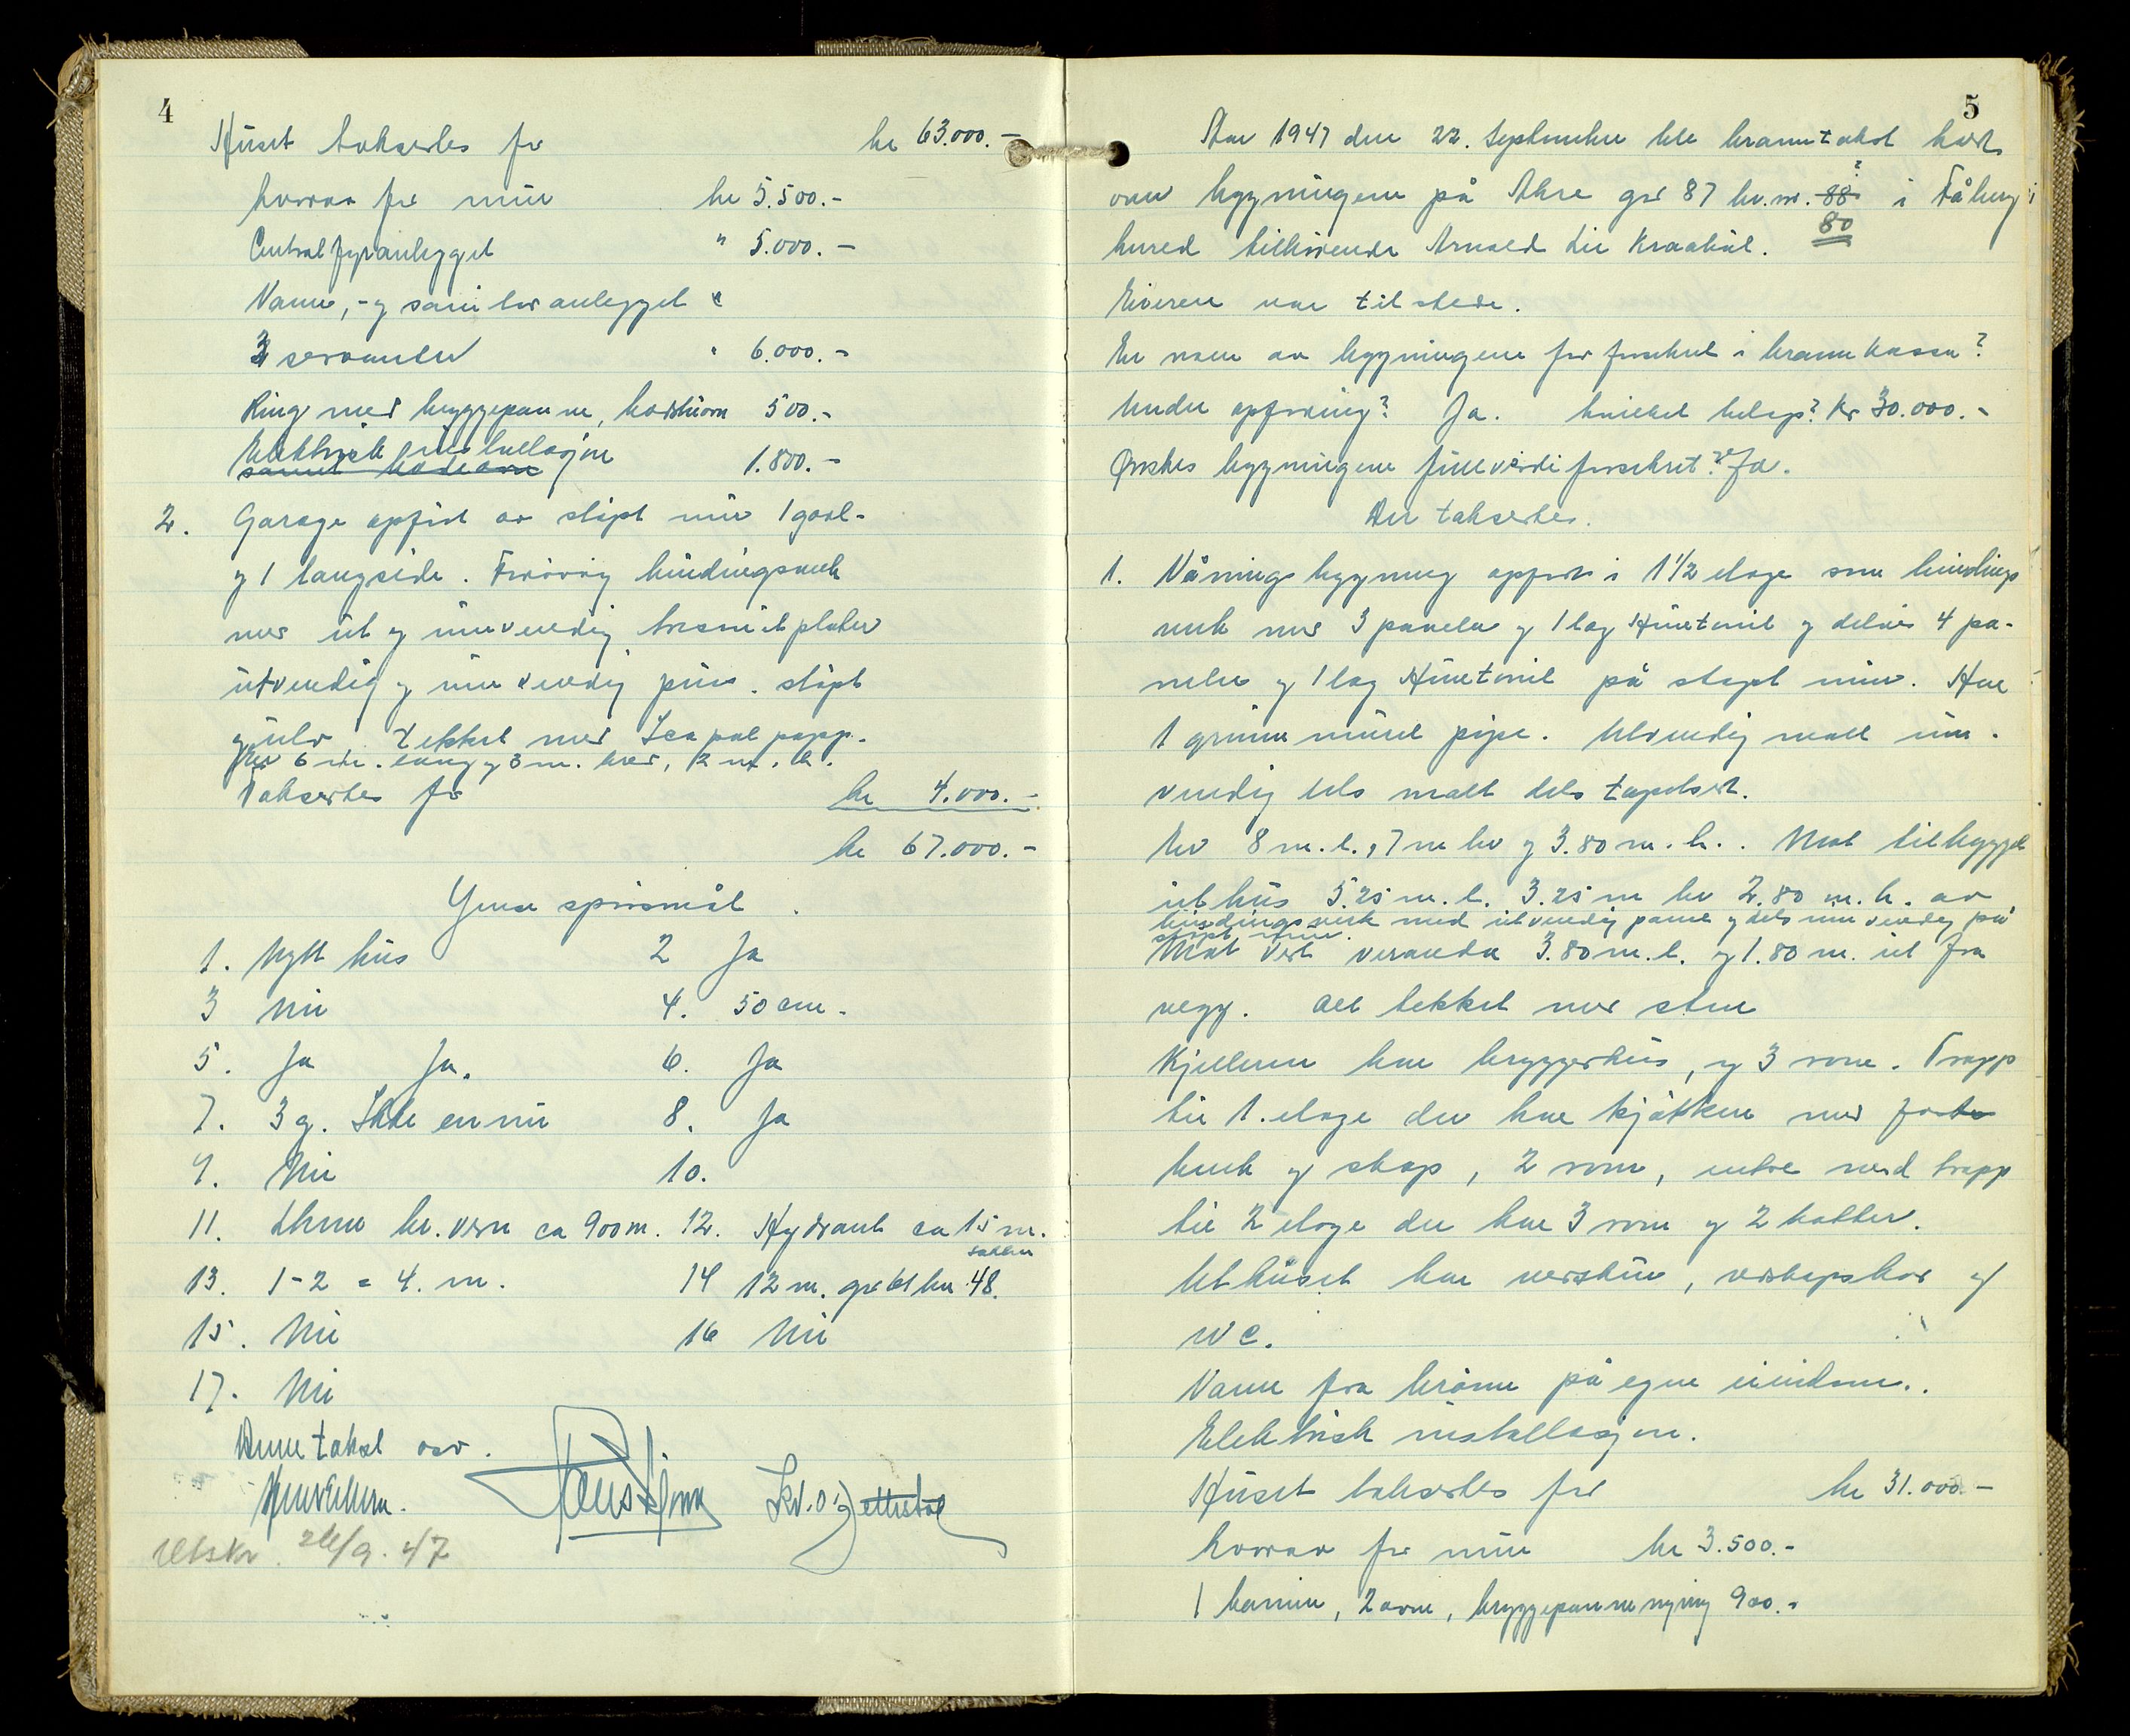 4
Huset takseres for kr 63.000.-
hvorav for mur kr 5.500.-
Centralfyranlegget " 5.000.-
Vann,- og sanitæranlegget "
3 servanter " 6.000.-
Ring med bryggepanne, 500.-
Elektrisk installasjon 1.800.-
2. Garage opført av støpt mur 1 gavl-
og 1 langside. Forøvrig bindingsverk
med ut og innvendig, tresnitplater
utvendig og innvendig puss. støpt
gulv, tekket med papp.
Er 6 m. lang og 3 m. bred, 2 m. h.
Takseres for kr 4.000.-
kr 67.000.-
Ymse spørsmål.
1. Nytt hus 2 Ja
3 Nei 4. 50 cm.
5. Ja Ja. 6. Ja
7. 3 g. Ikke ennu 8. Ja
9. Nei 10.
11. Lhmr br. vern ca 900 m. 12. Hydrant ca 15 m.
13. 1-2 = 4. m. 14 12 m. gr 61 bn 48.
15. Nei 16 Nei
17. Nei
Denne takst osv.
Utskr. 26/9. 47
5
Aar 1947 den 22. September ble branntakst holdt
over bygningene på Åkre gnr 87 br.nr. 88 i Fåberg
80
herred tilhørende Arnold Lie Kraabøl.
Eieren var tilstede.
Er noen av bygningene før forsikret i brannkassa?
Under opføring? Ja. hvilket beløp? Kr 30.000.-
Ønskes bygningene fullverdiforsikret? Ja.
Der takseres.
1. Våningsbygning oppført i 1 1/2 etage som bindings
verk med 3 paneler og 1 lag Huntonit og delvis 4 pa-
neler og 1 lag Huntonit på støpt mur. Har
1 grunnmuret pipe. Utvendig malt inn-
vendig dels malt dels tapetsert.
Er 8 m. l., 7 m br og 3.80 m. h. . Mot tilbygget
uthus 5.25 m. l. 3.25 m br 2.80 m. h. av
bindingsverk med utvendig panel og dels innvendig på
støpt mur.
Mot vest veranda 3.80 m. l. og 1.80 m. ut fra
vegg. Alt tekket med sten
Kjelleren har bryggerhus, og 3 rom. Trapp
til 1. etage der har kjøkken med faste
benk og skap, 2 rom, entre med trapp
til 2 etage der har 3 rom og 2 kotter.
Uthuset har verktøi, redskapsbod og
WC.
Vann fra brønn på egen eiendom..
Elektrisk installasjon.
Huset takseres for kr 31.000.-
hvorav for mur kr 3.500.-
1 kamin, 2 ovne, bryggepanne og ring 900.-